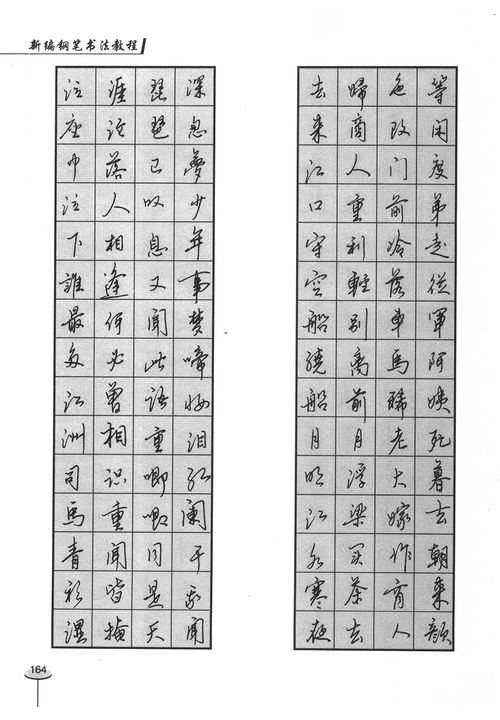 新编钢笔书法教程
等闲度弟走從軍阿姨死暮去朝来颜
色改门前冷落車馬稀老大嫁作商人
婦商人重利輕别离前月浮梁买茶去
去来江口守空船绕船月明江水寒夜
深忽夢少年事梦啼妆泪红阑干我闻
琵琶已叹息又闻此语重唧唧同是天
涯沦落人相逢何必曾相识重闻皆掩
泣座中泣下誰最多江洲司馬青衫湿
164